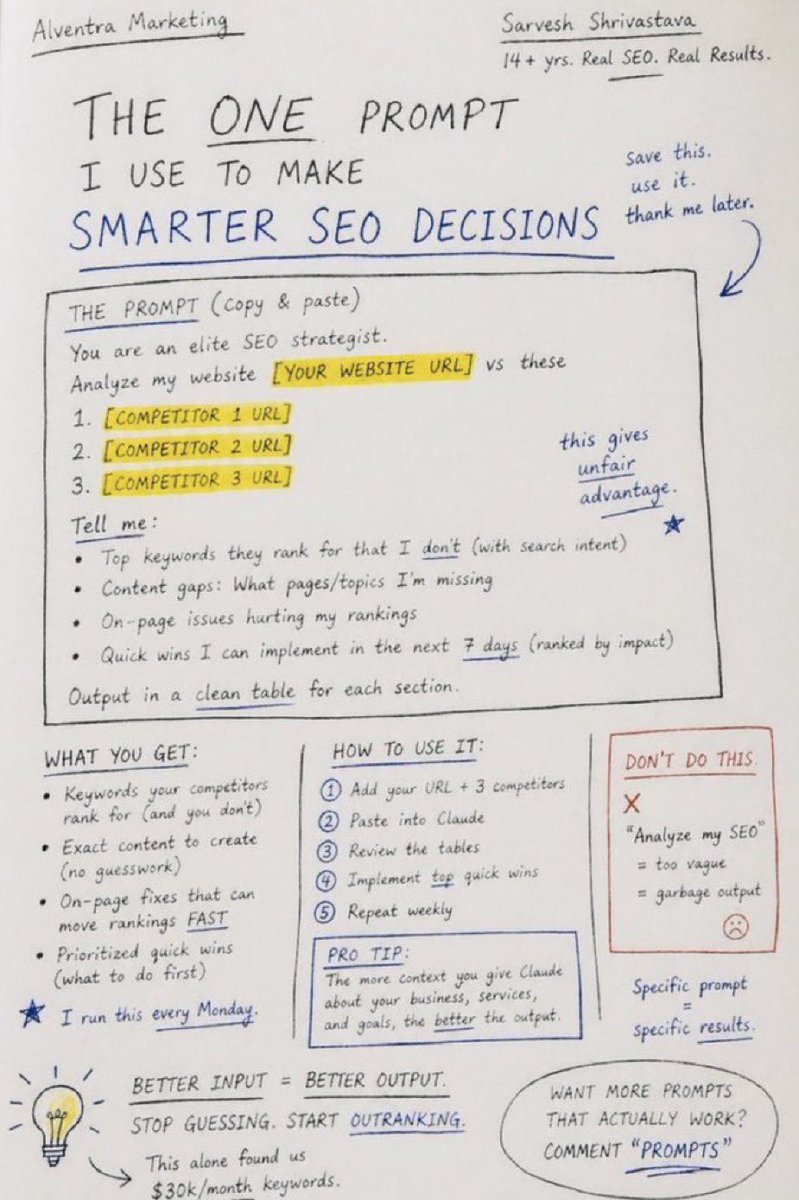 Alventra Marketing
Sarvesh Shrivastava
14+ yrs. Real SEO. Real Results.
THE ONE PROMPT
I USE TO MAKE
SMARTER SEO DECISIONS
save this.
use it.
thank me later.
THE PROMPT (copy & paste)
You are an elite SEO strategist.
Analyze my website [YOUR WEBSITE URL] vs these
1. [COMPETITOR 1 URL]
2. [COMPETITOR 2 URL]
3. [COMPETITOR 3 URL]
this gives
unfair
advantage.
Tell me:
• Top keywords they rank for that I don't (with search intent)
• Content gaps: What pages/topics I'm missing
• On-page issues hurting my rankings
• Quick wins I can implement in the next 7 days (ranked by impact)
Output in a clean table for each section.
WHAT YOU GET:
• Keywords your competitors
rank for (and you don't)
• Exact content to create
(no guesswork)
• On-page fixes that can
move rankings FAST
• Prioritized quick wins
(what to do first)
★ I run this every Monday.
HOW TO USE IT:
1 Add your URL + 3 competitors
2 Paste into Claude
3 Review the tables
4 Implement top quick wins
5 Repeat weekly
PRO TIP:
The more context you give Claude
about your business, services,
and goals, the better the output.
DON'T DO THIS.
X
"Analyze my SEO"
= too vague
= garbage output
Specific prompt
=
specific results.
BETTER INPUT = BETTER OUTPUT.
STOP GUESSING. START OUTRANKING.
This alone found us
$30k/month keywords.
WANT MORE PROMPTS
THAT ACTUALLY WORK?
COMMENT "PROMPTS"